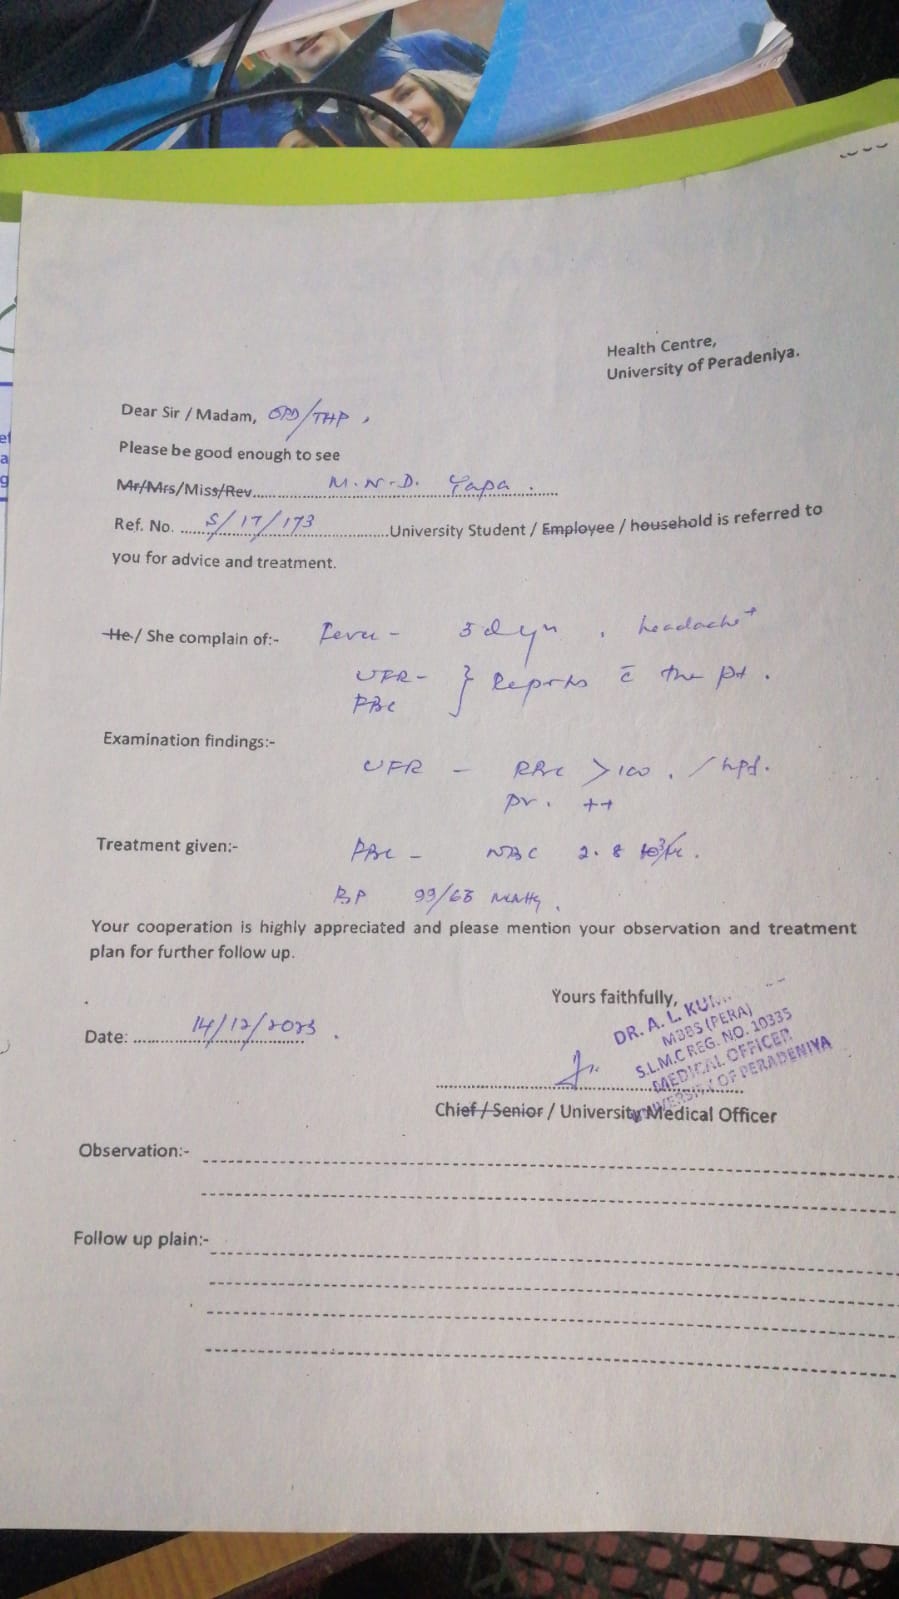 Health Centre,
University of Peradeniya.
Dear Sir / Madam, OPD/THP,
Please be good enough to see
Mr/Mrs/Miss/Rev.............. M.N.D. Yapa .
Ref. No. ....S/17/173..................University Student / Employee / household is referred to
you for advice and treatment.
He / She complain of:- Fever - days , headache +
UFR - } Reports c̄ the pt.
Examination findings:-
UFR - RBC >100 . / hpf.
pr. ++
Treatment given:- WBC 2.8 10³/
BP 99/ mmHg.
Your cooperation is highly appreciated and please mention your observation and treatment
plan for further follow up.
Yours faithfully,
DR. A. L.
MBBS (PERA)
S.L.M.C REG. NO. 10335
MEDICAL OFFICER
UNIVERSITY OF PERADENIYA
Date: ....14/12/2023 .
Chief / Senior / University Medical Officer
Observation:-
Follow up plain:-